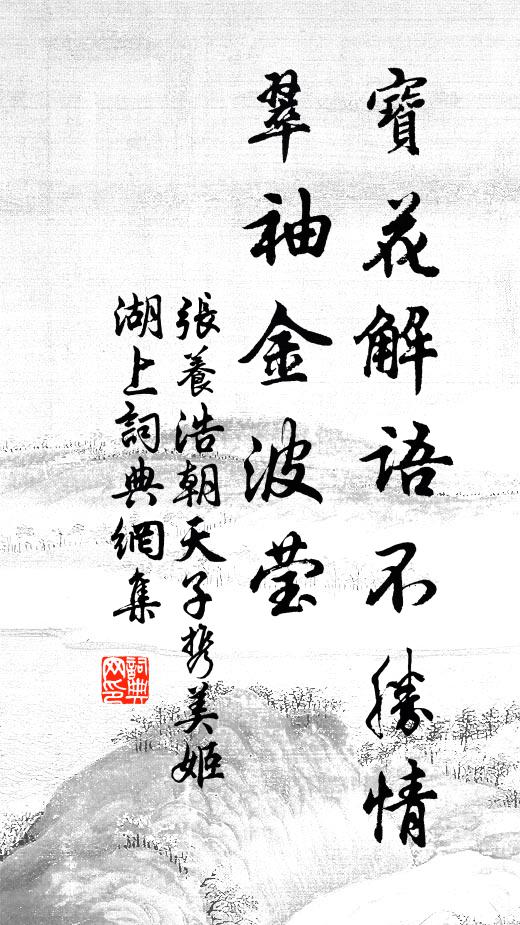 寶花解語不勝情
翠袖金波莹
張養浩朝天子携美姬
湖上詞典網集
詞典
网印